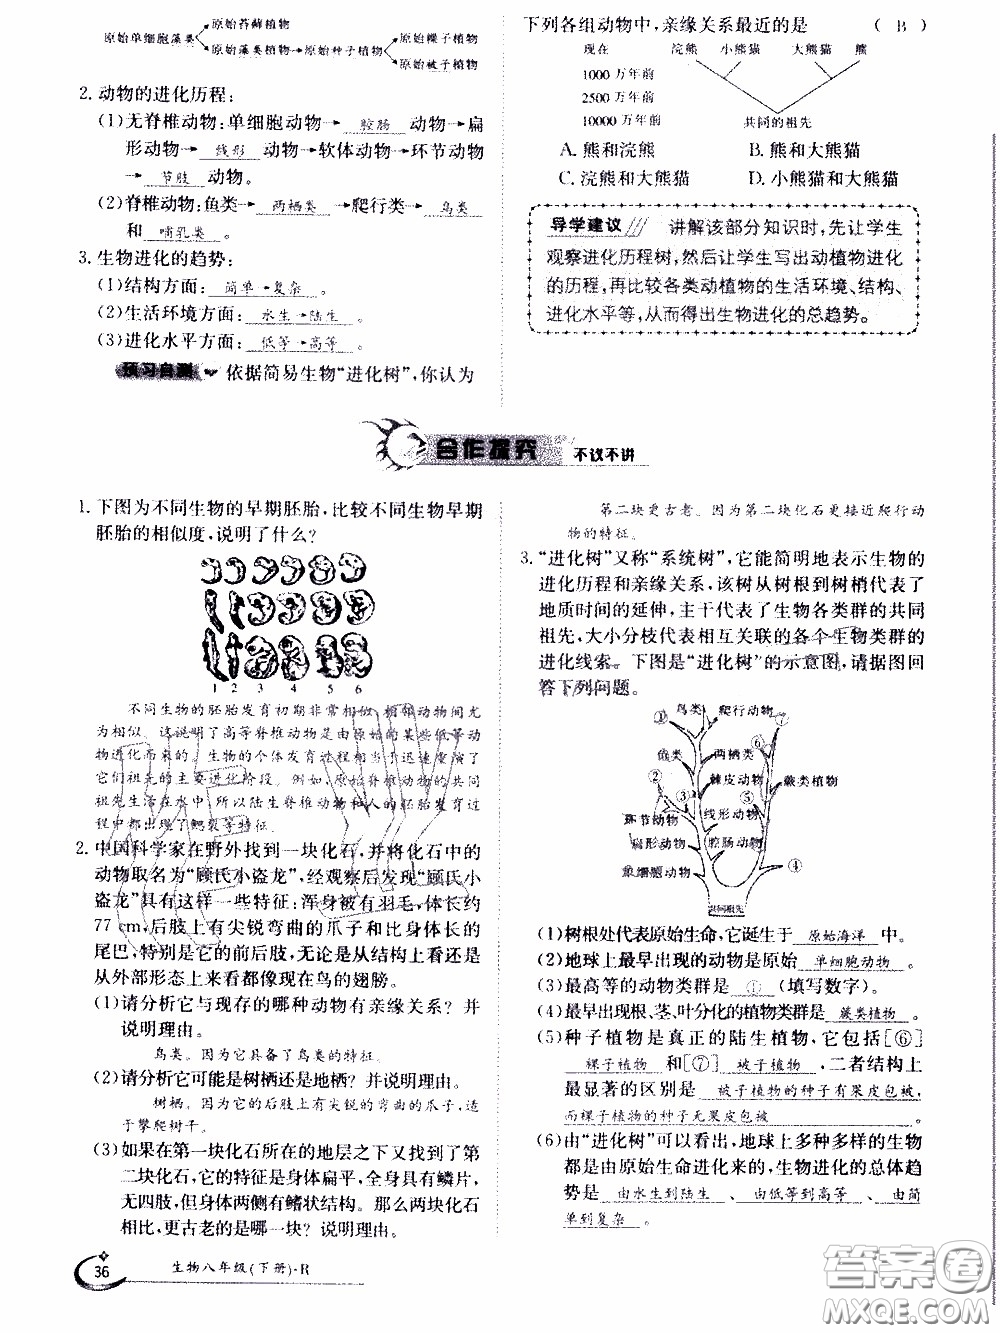 原始单细胞藻类
原始苔藓植物
原始藻类植物→原始种子植物
原始裸子植物
原始被子植物
2. 动物的进化历程:
(1)无脊椎动物:单细胞动物→ 腔肠 动物→扁
形动物→ 线形 动物→软体动物→环节动物
→ 节肢 动物。
(2)脊椎动物:鱼类→ 两栖类 →爬行类→ 鸟类
和 哺乳类 。
3. 生物进化的趋势:
(1)结构方面: 简单→复杂 。
(2)生活环境方面: 水生→陆生 。
(3)进化水平方面: 低等→高等 。
预习自测 依据简易生物“进化树”,你认为
下列各组动物中,亲缘关系最近的是 ( B )
现在 浣熊 小熊猫 大熊猫 熊
1000 万年前
2500 万年前
10000 万年前
共同的祖先
A. 熊和浣熊 B. 熊和大熊猫
C. 浣熊和大熊猫 D. 小熊猫和大熊猫
导学建议 讲解该部分知识时,先让学生
观察进化历程树,然后让学生写出动植物进化
的历程,再比较各类动植物的生活环境、结构、
进化水平等,从而得出生物进化的总趋势。
合作探究 不议不讲
1. 下图为不同生物的早期胚胎,比较不同生物早期
胚胎的相似度,说明了什么?
1 2 3 4 5 6
不同生物的胚胎发育初期非常相似,相邻动物间尤
为相似。这说明了高等脊椎动物是由原始的某些低等动
物进化而来的。生物的个体发育过程相当迅速地重演了
它们祖先的主要进化阶段。例如,原始脊椎动物的共同
祖先生活在水中,所以陆生脊椎动物和人的胚胎发育过
程中都出现了鳃裂等特征。
2. 中国科学家在野外找到一块化石,并将化石中的
动物取名为“顾氏小盗龙”,经观察后发现“顾氏小
盗龙”具有这样一些特征:浑身被有羽毛,体长约
77 cm,后肢上有尖锐弯曲的爪子和比身体长的
尾巴,特别是它的前后肢,无论是从结构上看还是
从外部形态上来看都很像现在鸟的翅膀。
(1)请分析它与现存的哪种动物有亲缘关系? 并
说明理由。
鸟类。因为它具备了鸟类的特征。
(2)请分析这可能是树栖还是地栖? 并说明理由。
树栖。因为它的后肢上有尖锐的弯曲的爪子,适
于攀爬树干。
(3)如果在第一块化石所在的地层之下又找到了第
二块化石,它的特征是身体扁平,身体上有鳞片,
无四肢,但身体两侧有鳍状结构。那么两块化石
相比,更古老的是哪一块? 说明理由。
第二块更古老。因为第二块化石更接近爬行动
物的特征。
3. “进化树”又称“系统树”,它能简明地表示生物的
进化历程和亲缘关系,该树从树根到树梢代表了
地质时间的延伸,主干代表了生物各类群的共同
祖先,大小分枝代表相互关联的各个生物类群的
进化线索。下图是“进化树”的示意图,请据图回
答下列问题。
① 鸟类 爬行动物 ⑦
鱼类 两栖类 ⑥
② 棘皮动物 蕨类植物
③ ⑤
环节动物 线形动物
扁形动物 腔肠动物 ④
单细胞动物
共同祖先
(1)树根处代表原始生命,它诞生于 原始海洋 中。
(2)地球上最早出现的动物是原始 单细胞动物 。
(3)最高等的动物类群是 ① (填写数字)。
(4)最早出现根、茎、叶分化的植物类群是 蕨类植物 。
(5)种子植物是真正的陆生植物,它包括[⑥]
裸子植物 和[⑦] 被子植物 ,二者结构上
最显著的区别是 被子植物的种子有果皮包被,
而裸子植物的种子无果皮包被 。
(6)由“进化树”可以看出,地球上多种多样的生物
都是由原始生命进化来的,生物进化的总体趋
势是 由水生到陆生 、 由低等到高等 、 由简
单到复杂 。
36 生物八年级(下册)·R
答案圈
MXQE.COM